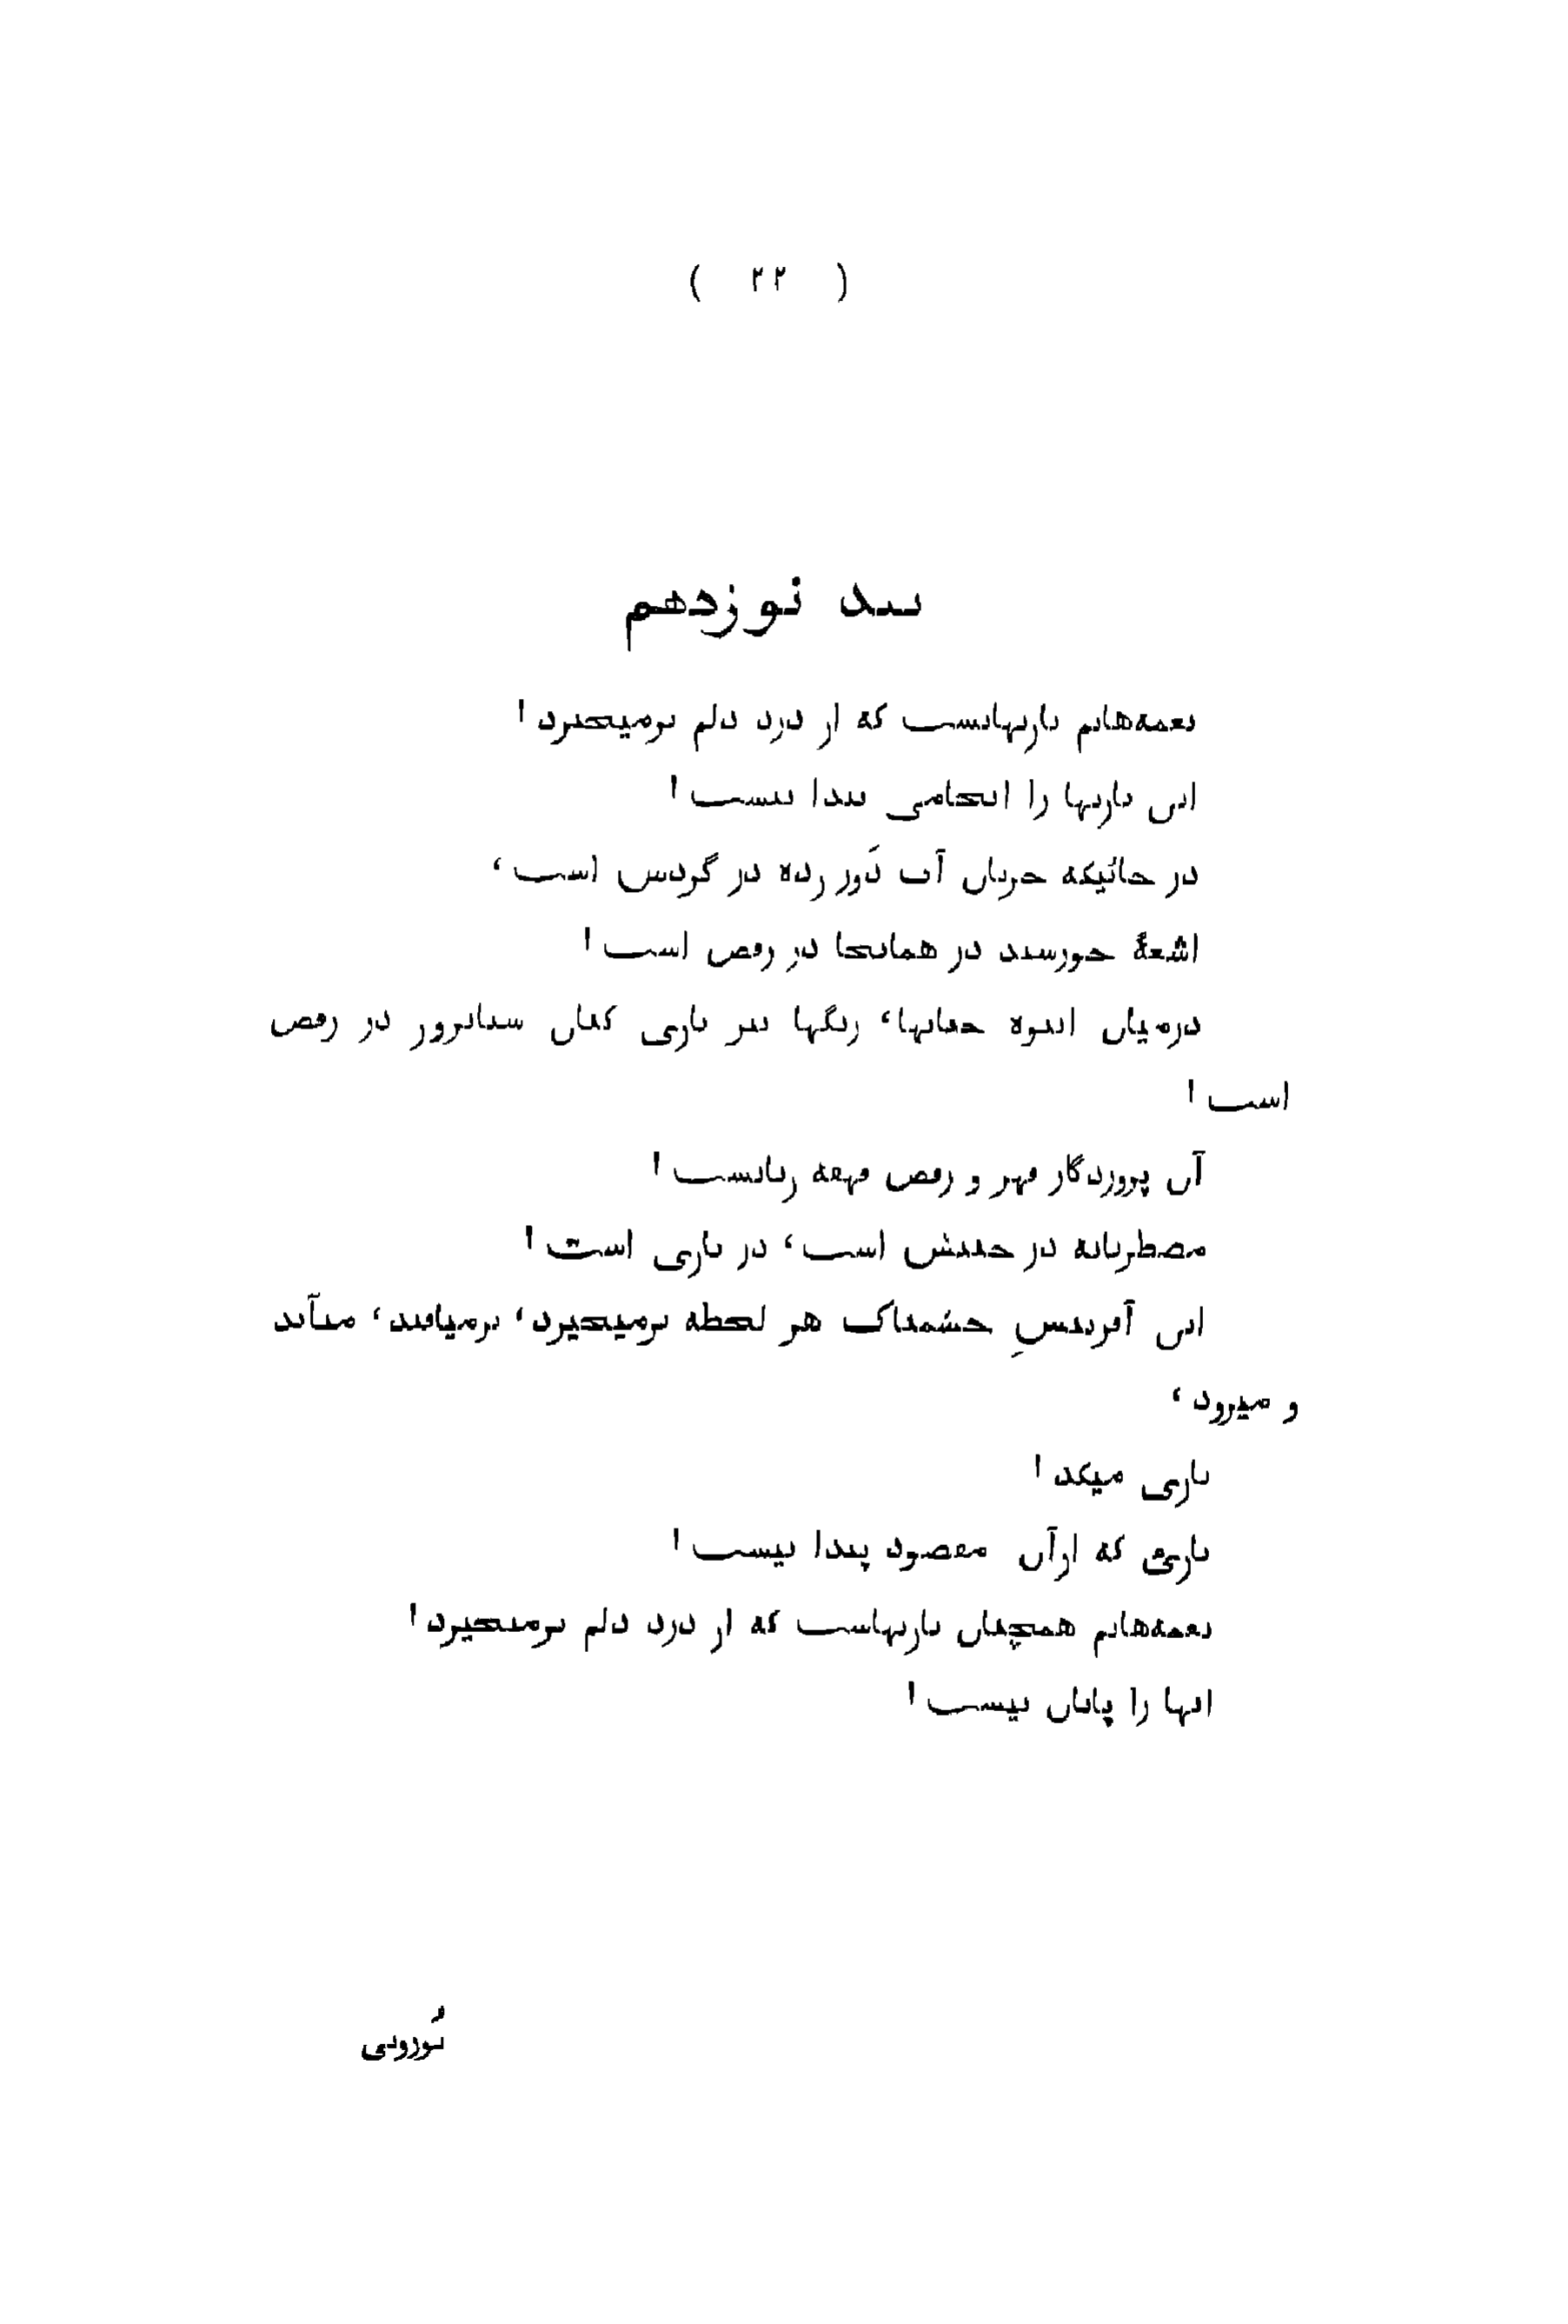 ( ۲۲ )
بند نوزدهم
نغمه‌هایم بازیهایست که از درد دلم برمیخیزد !
این بازیها را انجامی پیدا نیست !
در حالیکه جریان آب دَور زده در گردش است ،
اشعهٔ خورشید در همانجا در رقص است !
درمیان انبوه حبابها ، رنگها نیز بازی کنان سبانرور در رقص
است !
آن پروردگار قهر و رقص قهقه زنانست !
مضطربانه در جنبش است ، در بازی است !
این آفرینشِ خشمناک هر لحظه برمیخیزد ، برمیافتد ، میآید
و میرود ،
بازی میکند !
بازئ که ازآن مقصود پیدا نیست !
نغمه‌هایم همچنان بازیهاست که از درد دلم برمیخیزد !
اینها را پایان نیست !